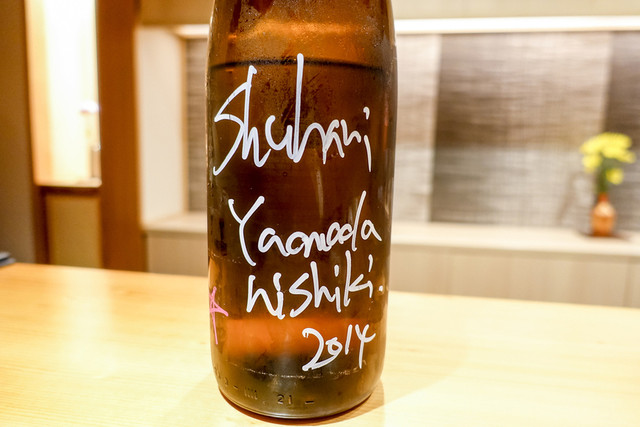 Shuhari
Yamada
Nishiki.
2014
21